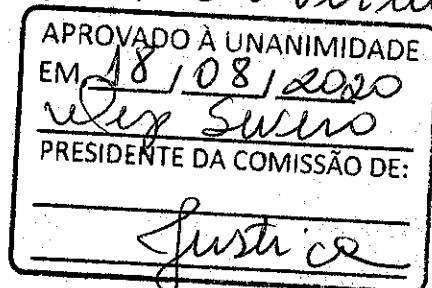 APROVADO À UNANIMIDADE
EM 18 / 08 / 2020
PRESIDENTE DA COMISSÃO DE:
Justiça